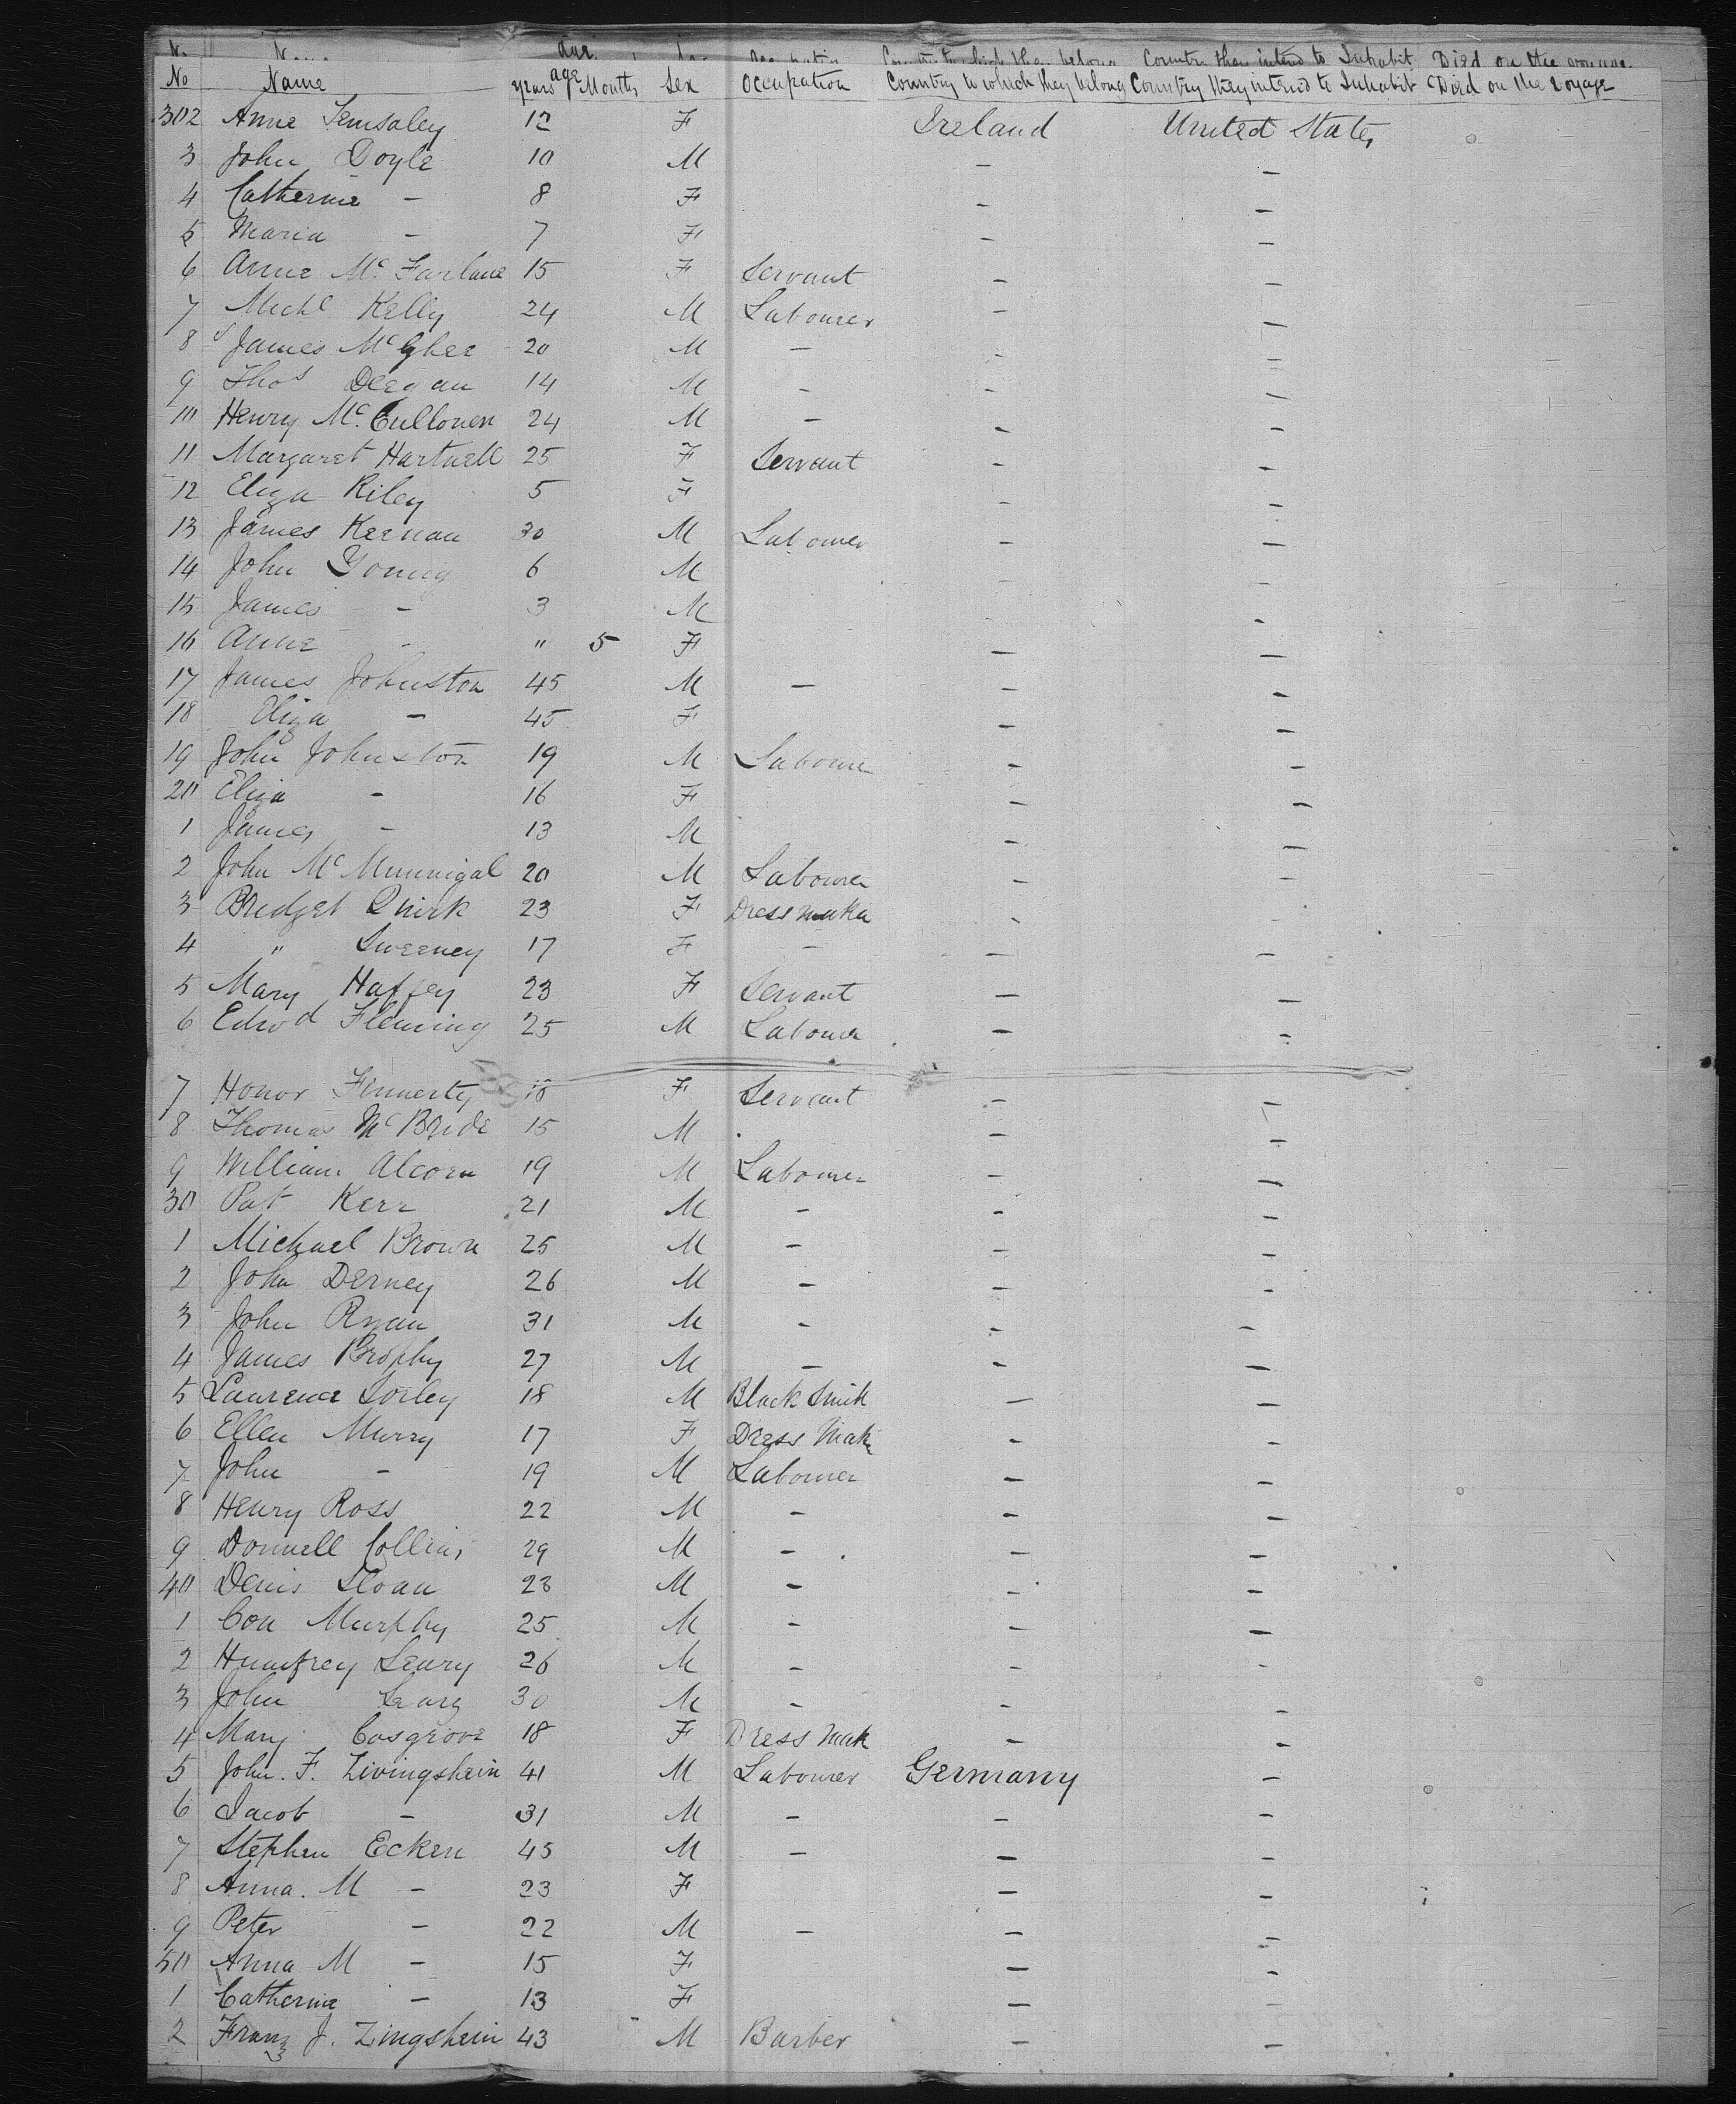 No Name age years Months Sex Occupation Country to which they belong Country they intend to Inhabit Died on the voyage
302 Anne 12 F Ireland United States
3 John Doyle 10 M - -
4 Catherine - 8 F - -
5 Maria - 7 F - -
6 Anne Mc. Farlane 15 F Servant - -
7 Michl Kelly 24 M Labourer - -
8 James McGhee 20 M - - -
9 Thos Deegan 14 M - - -
10 Henry Mc. 24 M - - -
11 Margaret Hartnell 25 F Servant - -
12 Eliza Riley 5 F - -
13 James Kernan 30 M Labourer - -
14 John Young 6 M - -
15 James - 3 M -
16 Anne - " 5 F - -
17 James Johnston 45 M - - -
18 Eliza - 45 F - -
19 John Johnston 19 M Labourer - -
20 Eliza - 16 F - -
1 James - 13 M - -
2 John Mc Munnigal 20 M Labourer - -
3 Bridget Quirk 23 F Dress maker - -
4 " Sweeney 17 F - - -
5 Mary Haffey 23 F Servant - -
6 Edwd Fleming 25 M Labourer - -
7 Honor Finnerty F Servant - -
8 Thomas McBride 15 M - -
9 William Alcorn 19 M Labourer - -
30 Pat Kerr 21 M - - -
1 Michael Brown 25 M - - -
2 John Derney 26 M - - -
3 John Ryan 31 M - - -
4 James Brophy 27 M - - -
5 Laurence Sorley 18 M Black Smith - -
6 Ellen Murry 17 F Dress Maker - -
7 John - 19 M Labourer - -
8 Henry Ross 22 M - - -
9 Donnell Collins 29 M - - -
40 Denis Sloan 23 M - - -
1 Con Murphy 25 M - - -
2 Humfrey Leary 26 M - - -
3 John Leary 30 M - - -
4 Mary Cosgrove 18 F Dress Mak - -
5 John. F. Zivingshein 41 M Labourer Germany -
6 Jacob - 31 M - - -
7 Stephen Ecken 45 M - - -
8 Anna. M - 23 F - -
9 Peter - 22 M - - -
50 Anna M - 15 F - -
1 Catherine - 13 F - -
2 Franz J. Zingshein 43 M Barber - -